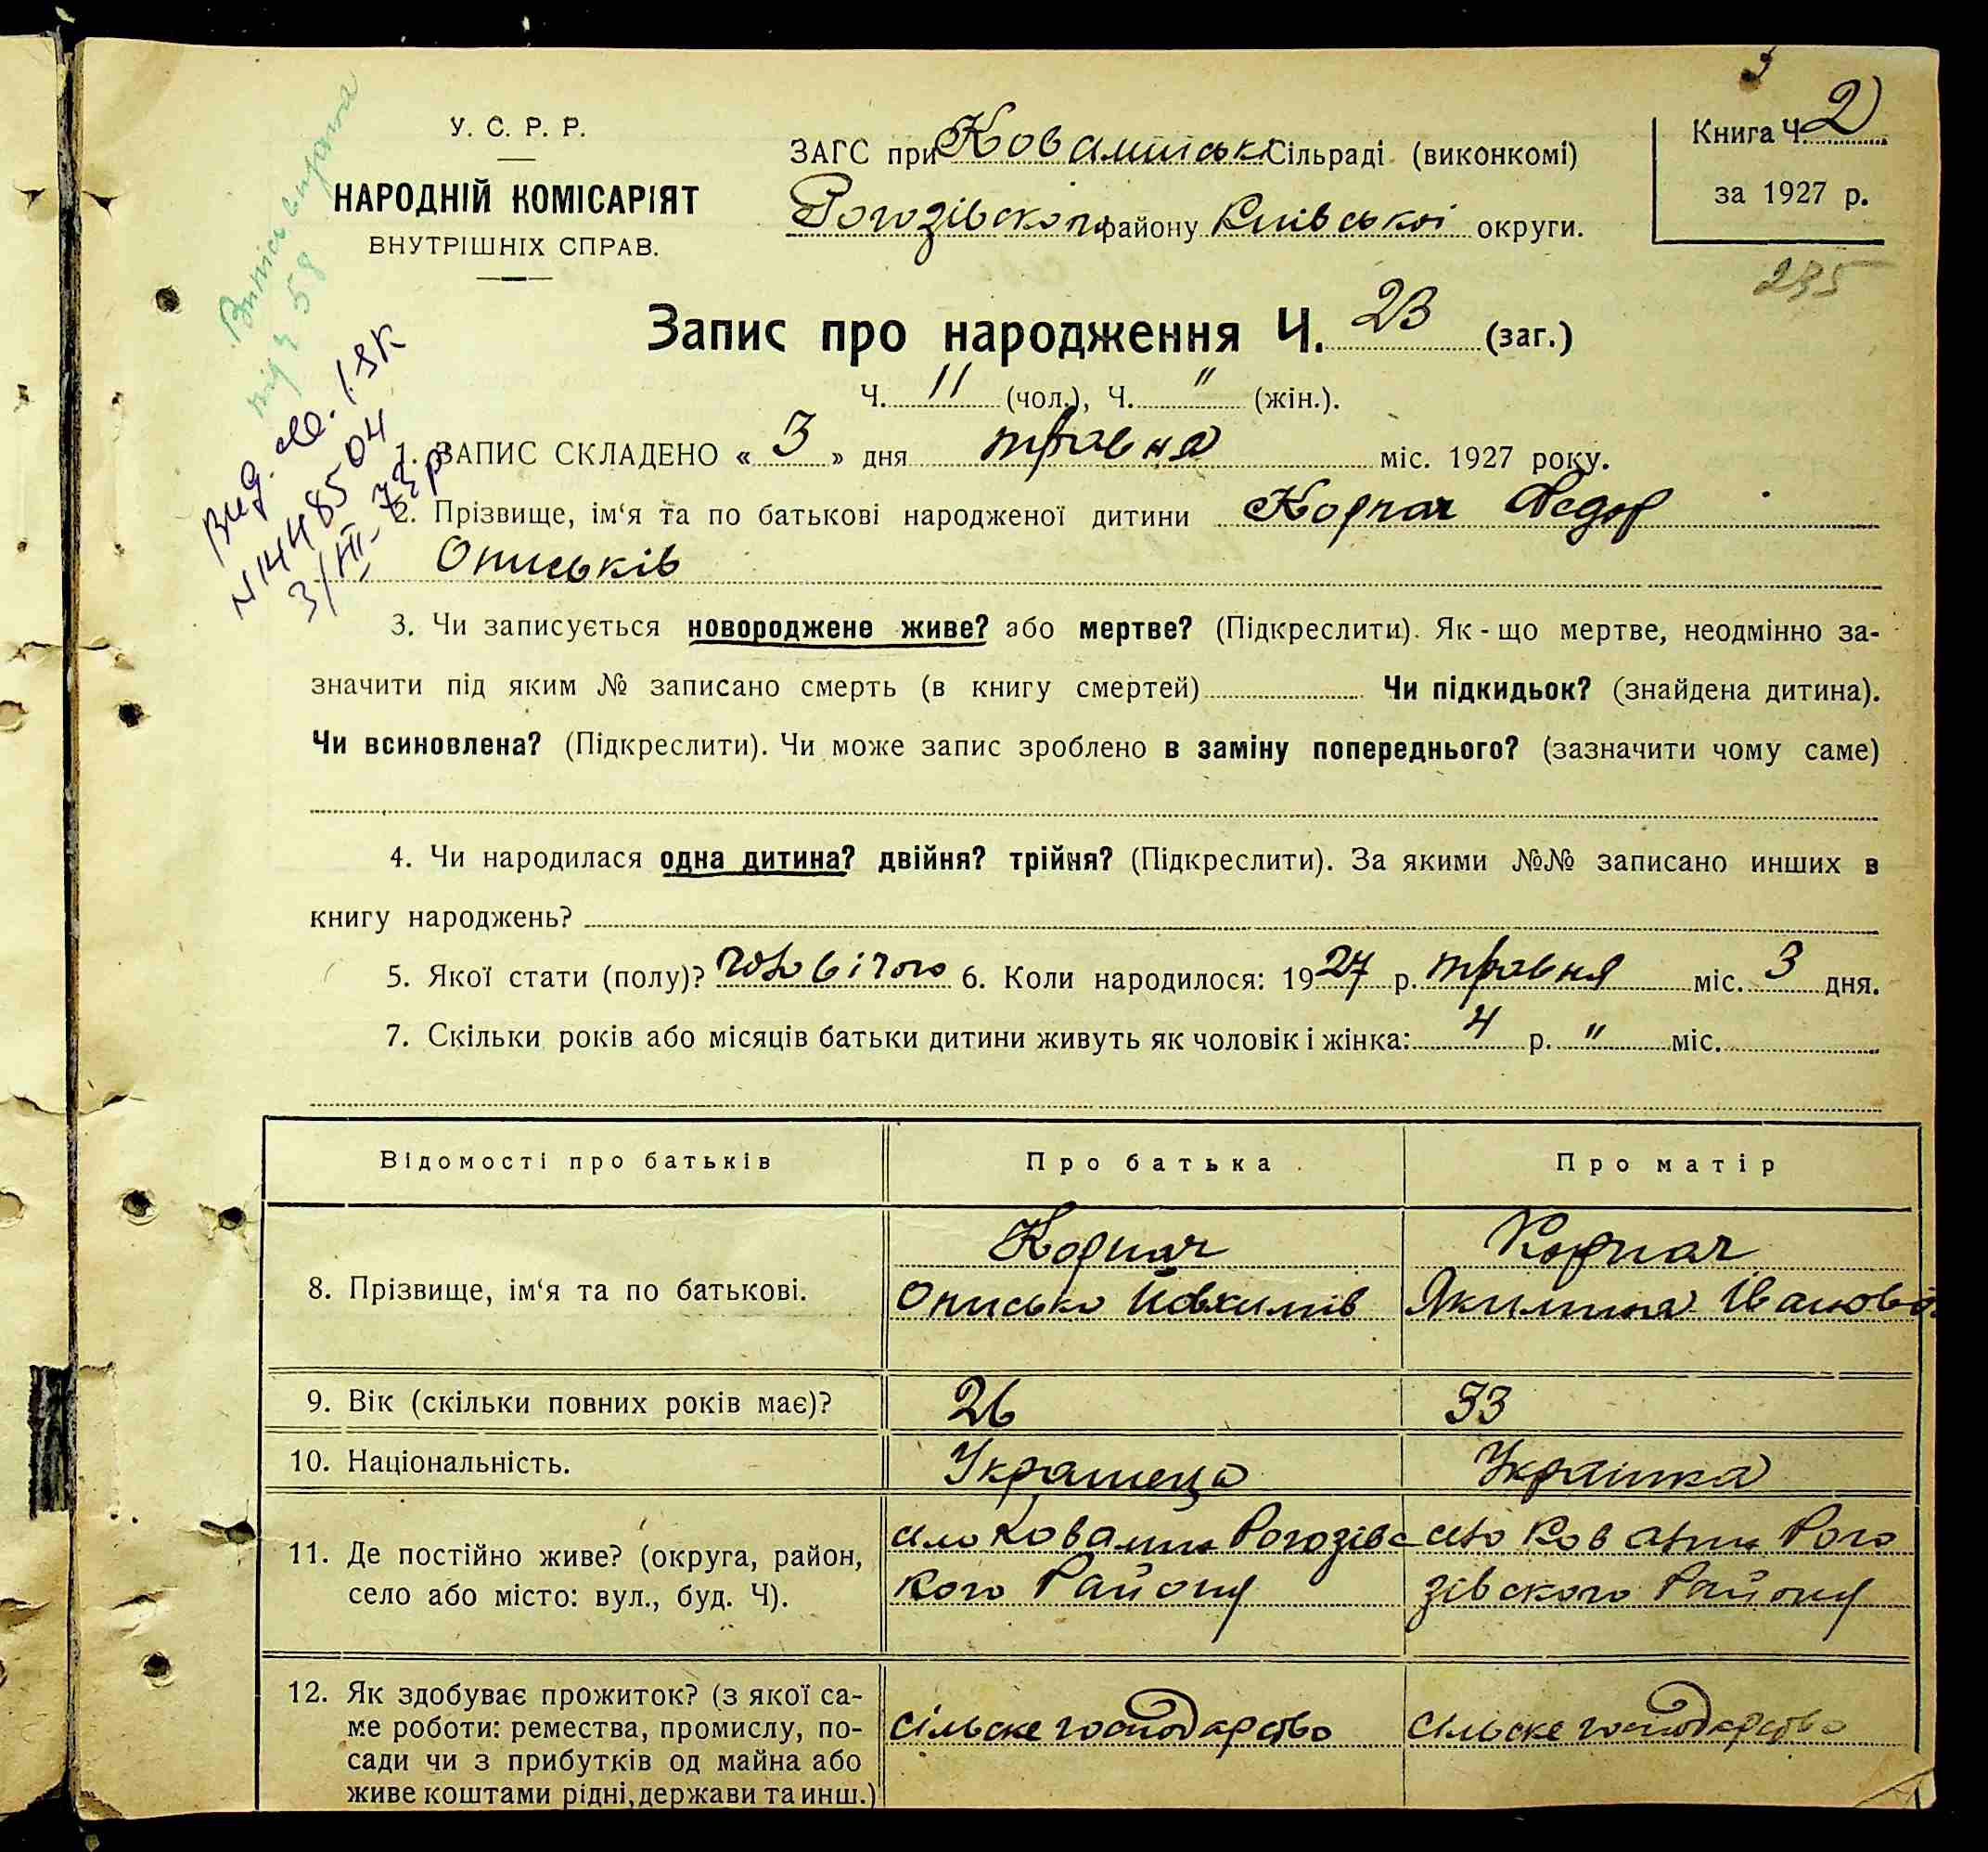 3
У. С. Р. Р.
НАРОДНІЙ КОМІСАРІЯТ
ВНУТРІШНІХ СПРАВ.
ЗАГС при Ковалинські Сільраді (виконкомі)
Рогозівского району Київської округи.
Книга Ч. 2
за 1927 р.
235
Випись видана
під ч 58
Вид. св. І ЯК
N 1448504
3/III-73 р
Запис про народження Ч. 23 (заг.)
Ч. 11 (чол.), Ч. " (жін.).
1. ЗАПИС СКЛАДЕНО « 3 » дня травня міс. 1927 року.
2. Прізвище, ім‘я та по батькові народженої дитини Корпач Федор
Описьків
3. Чи записується новороджене живе? або мертве? (Підкреслити). Як-що мертве, неодмінно за-
значити під яким № записано смерть (в книгу смертей) Чи підкидьок? (знайдена дитина).
Чи всиновлена? (Підкреслити). Чи може запис зроблено в заміну попереднього? (зазначити чому саме)
4. Чи народилася одна дитина? двійня? трійня? (Підкреслити). За якими №№ записано инших в
книгу народжень?
5. Якої стати (полу)? чоловічого 6. Коли народилося: 1927 р. травня міс. 3 дня.
7. Скільки років або місяців батьки дитини живуть як чоловік і жінка: 4 р. " міс.
Відомості про батьків Про батька Про матір
8. Прізвище, ім‘я та по батькові. Корпач Корпач
Описько Йовхимів Якилина Іванова
9. Вік (скільки повних років має)? 26 33
10. Національність. Украінець Украінка
11. Де постійно живе? (округа, район, село Ковалин Рогозівс село Ковалин Рого
село або місто: вул., буд. Ч). кого Району зівского Району
12. Як здобуває прожиток? (з якої са-
ме роботи: ремества, промислу, по- сільске господарство сільске господарство
сади чи з прибутків од майна або
живе коштами рідні, держави та инш.)